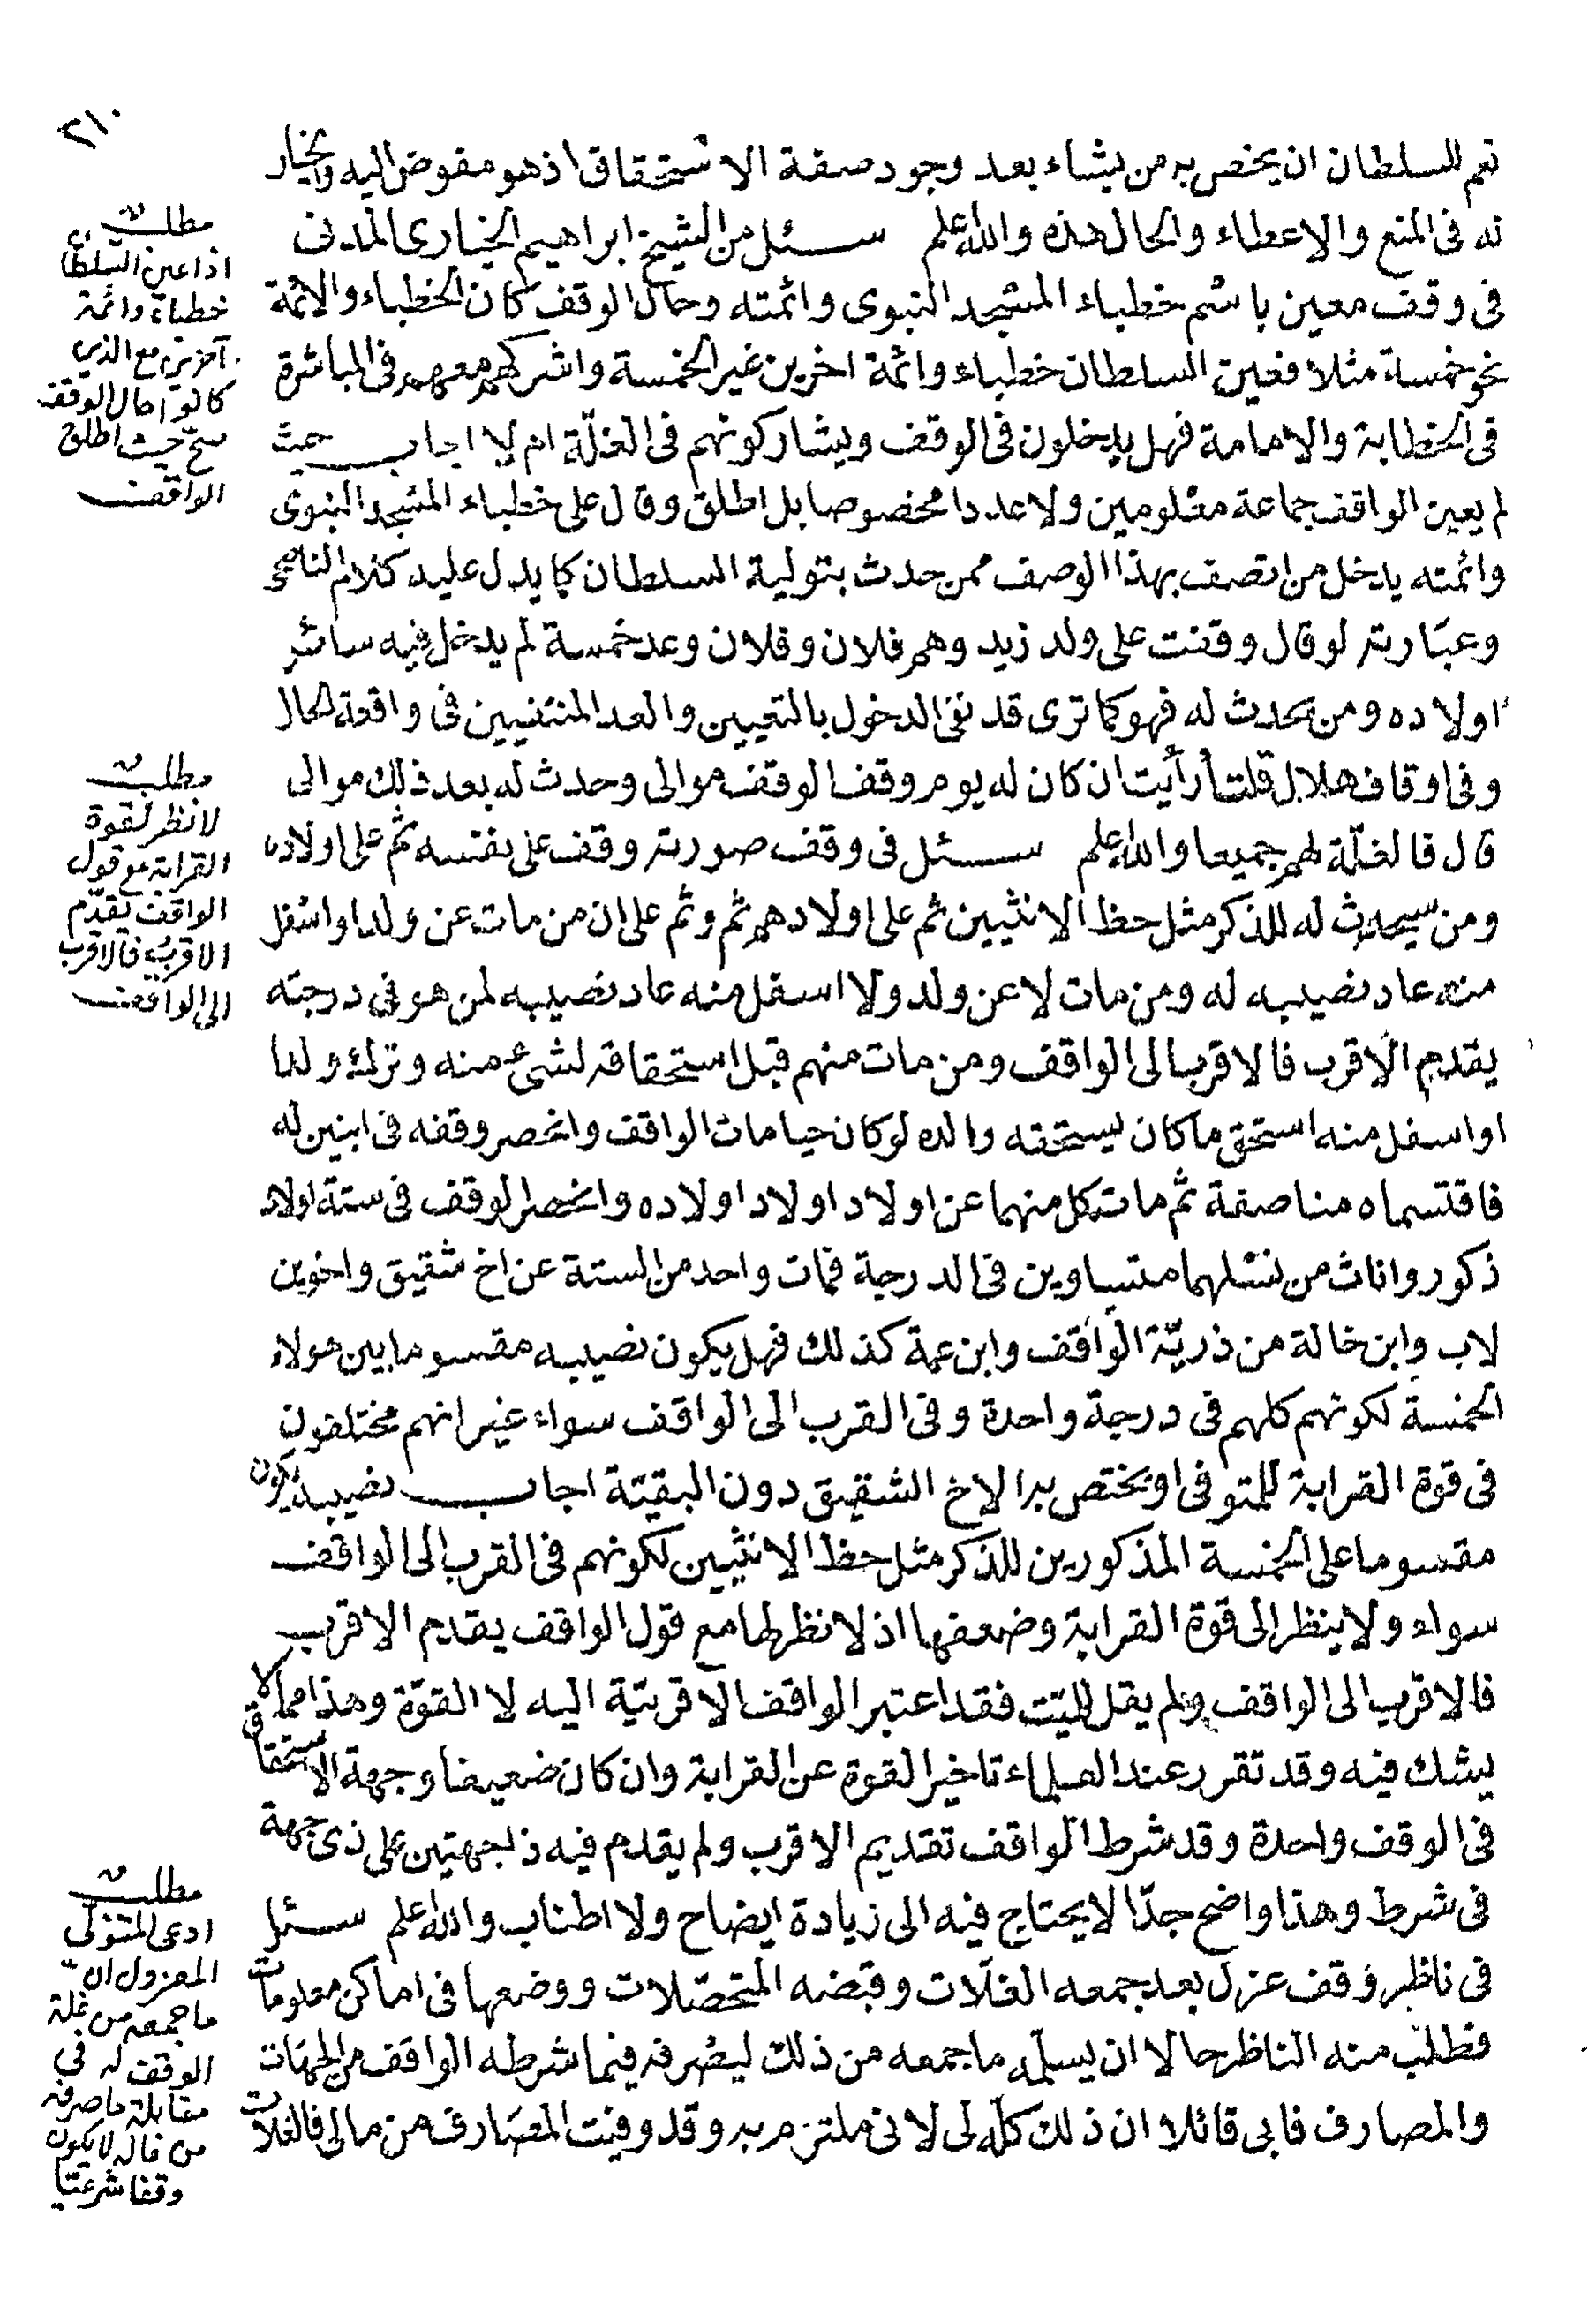 ٢١٠
نعم للسلطان ان يخص به من يشاء بعد وجود صفة الاستحقاق اذ هو مفوض اليه والخيار
له فى المنع والاعطاء والحال هذه والله اعلم سئل من الشيخ ابراهيم الخيارى المدنى
فى وقف معين باسم خطباء المسجد النبوى وائمته وحال الوقف كان الخطباء والائمة
نحو خمسة مثلا فعين السلطان خطباء وائمة اخرين غير الخمسة واشركهم معهم فى المباشرة
فى الخطابة والامامة فهل يدخلون فى الوقف ويشاركونهم فى الغلّة ام لا اجاب حيث
لم يعين الواقف جماعة معلومين ولا عددا مخصوصا بل اطلق وقال على خطباء المسجد النبوى
وائمته يدخل من اتصف بهذا الوصف ممن حدث بتولية السلطان كما يدل عليه كلام الناصحى
وعبارته لو قال وقفت على ولد زيد وهم فلان وفلان وعد خمسة لم يدخل فيه سائر
اولاده ومن يحدث له فهو كما ترى قد نفى الدخول بالتعيين والعد المنتفيين فى واقعة الحال
وفى اوقاف هلال قلت أرأيت ان كان له يوم وقف الوقف موالى وحدث له بعد ذلك موالى
قال فالغلّة لهم جميعا والله اعلم سئل فى وقف صورته وقف على نفسه ثم على اولاده
ومن سيحدث له للذكر مثل حظ الانثيين ثم على اولادهم ثم وثم على ان من مات عن ولد او اسفل
منه عاد نصيبه له ومن مات لا عن ولد ولا اسفل منه عاد نصيبه لمن هو فى درجته
يقدم الاقرب فالاقرب الى الواقف ومن مات منهم قبل استحقاقه لشىء منه وترك ولدا
او اسفل منه استحق ما كان يستحقه والده لو كان حيا مات الواقف وانحصر وقفه فى ابنين له
فاقتسماه مناصفة ثم مات كل منهما عن اولاد اولاد اولاده وانحصر الوقف فى ستة اولاد
ذكور واناث من نسلهما متساوين فى الدرجة فمات واحد من الستة عن اخ شقيق واخوين
لاب وابن خالة من ذريّة الواقف وابن عمة كذلك فهل يكون نصيبه مقسوما بين هولاء
الخمسة لكونهم كلهم فى درجة واحدة وفى القرب الى الواقف سواء غير انهم مختلفون
فى قوة القرابة للمتوفى او يختص به الاخ الشقيق دون البقيّة اجاب نصيبه يكون
مقسوما على الخمسة المذكورين للذكر مثل حظ الانثيين لكونهم فى القرب الى الواقف
سواء ولا ينظر الى قوة القرابة وضعفها اذ لا نظر لها مع قول الواقف يقدم الاقرب
فالاقرب الى الواقف ولم يقل للميّت فقد اعتبر الواقف الاقربيّة اليه لا القوّة وهذا مما لا
يشك فيه وقد تقرر عند العلماء تاخير القوة عن القرابة وان كان ضعيفا وجهة الاستحقاق
فى الوقف واحدة وقد شرط الواقف تقديم الاقرب ولم يقدم فيه ذا جهتين على ذى جهة
فى شرط وهذا واضح جدّا لا يحتاج فيه الى زيادة ايضاح ولا اطناب والله اعلم سئل
فى ناظر وقف عزل بعد جمعه الغلّات وقبضه المتحصّلات ووضعها فى اماكن معلومات
فطلب منه الناظر حالا ان يسلمه ما جمعه من ذلك ليصرفه فيما شرطه الواقف من الجهات
والمصارف فابى قائلا ان ذلك كلّه لى لانى ملتزم به وقد وفيت المصارف من مالى فالغلات
مطلب
اذا عين السلطان
خطباء وائمة
آخرين مع الذين
كانوا حال الوقف
صح حيث اطلق
الواقف
مطلب
لا نظر لقوة
القرابة مع قول
الواقف يقدّم
الاقرب فالاقرب
الى الواقف
مطلب
ادعى المتولى
المعزول ان
ما جمعه من غلة
الوقف له فى
مقابلة ما صرفه
من ماله لا يكون
وقفا شرعيّا